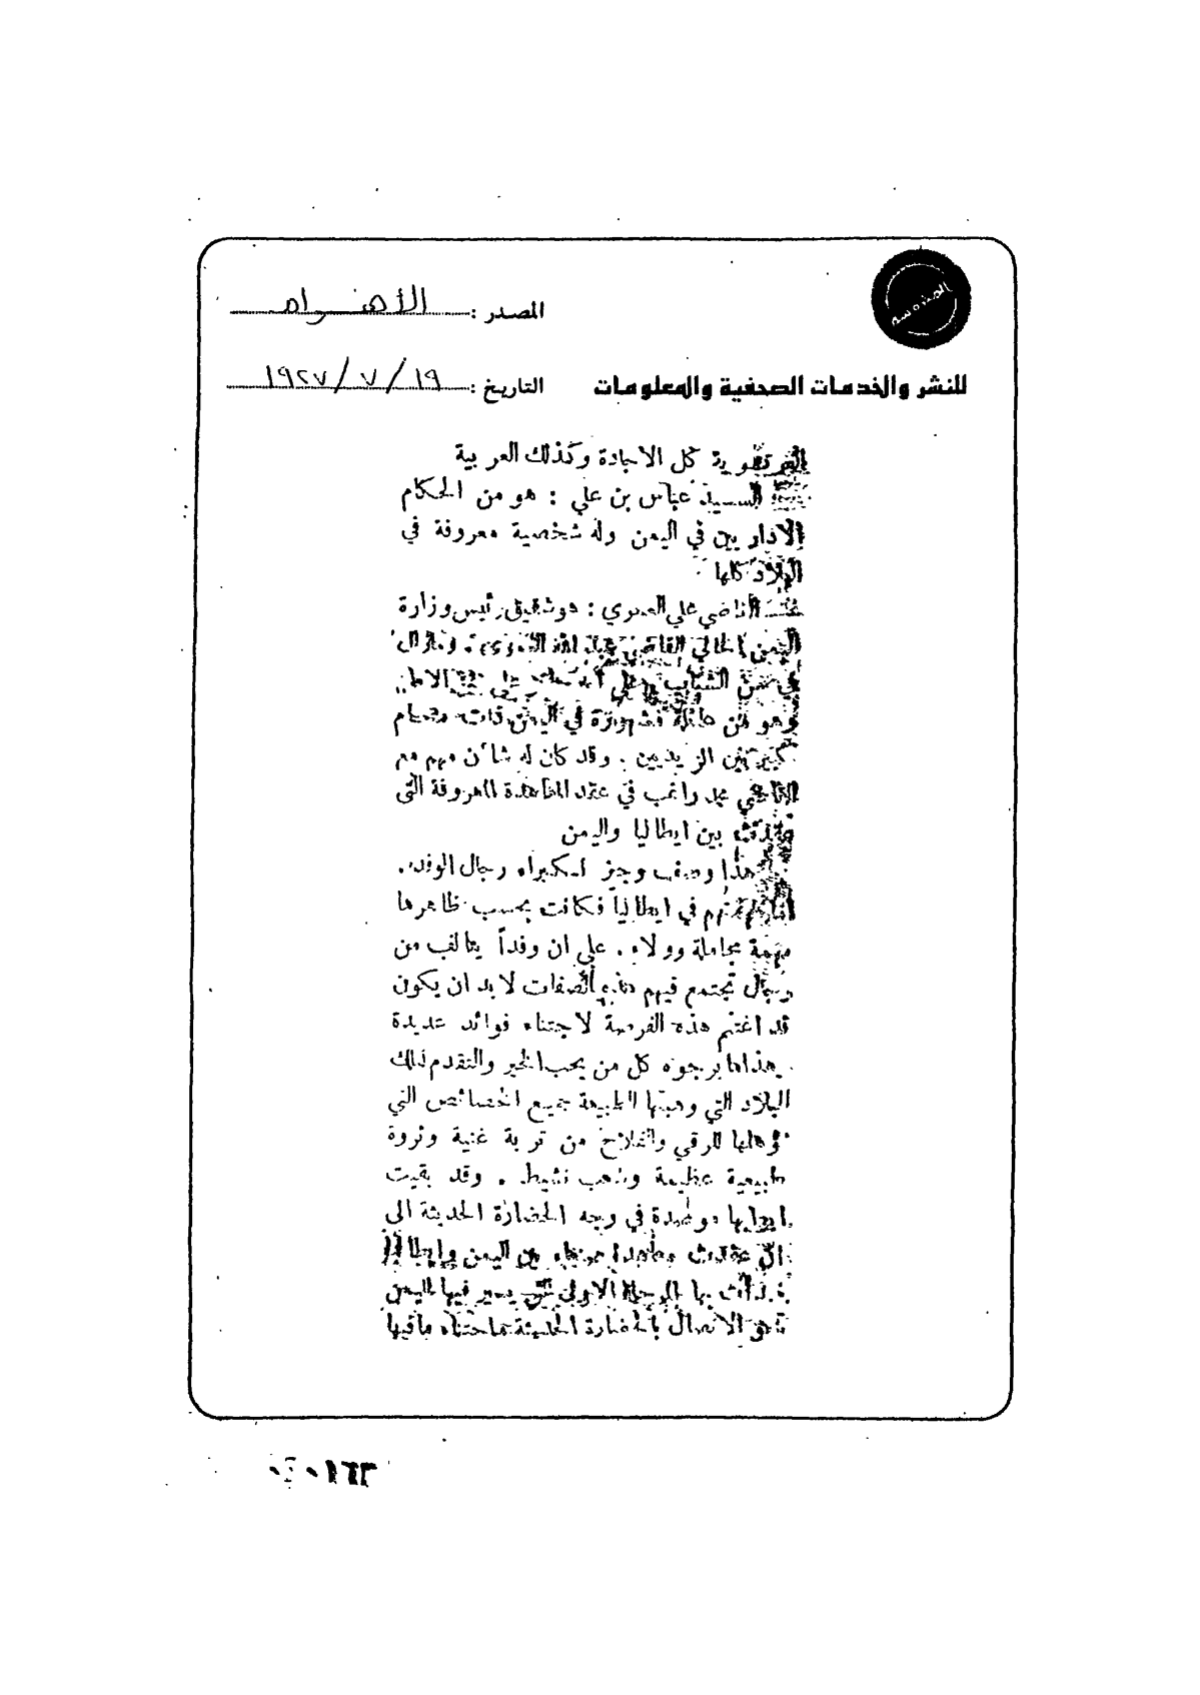 المصدر : الأهرام
للنشر والخدمات الصحفية والمعلومات
التاريخ : ١٩ / ٧ / ١٩٢٧
كل الاجادة وكذلك العربية
السيد عباس بن علي : هو من الحكام
الاداريين في اليمن وله شخصية معروفة في
البلاد كلها
القاضي علي العمري : هو شقيق رئيس وزارة
اليمن الحالي القاضي عبد الله العمري . ومازال
في سن الشباب
وهو من عائلة مشهورة في اليمن ذات مقام
كبير بين الزيديين . وقد كان له شأن مهم مع
القاضي محمد راغب في عقد المعاهدة المعروفة التى
عقدت بين ايطاليا واليمن
هذا وصف وجيز لكبراء رجال الوفد .
أما مهمتهم في ايطاليا فكانت بحسب ظاهرها
مهمة مجاملة وولاء . على ان وفداً يتألف من
رجال تجتمع فيهم هذه الصفات لا بد ان يكون
قد اغتنم هذه الفرصة لاجتناء فوائد عديدة
هذا ما يرجوه كل من يحب الخير والتقدم لتلك
البلاد التي وهبتها الطبيعة جميع الخصائص التي
تؤهلها للرقي والفلاح من تربة غنية وثروة
طبيعية عظيمة وشعب نشيط . وقد بقيت
ابوابها موصدة في وجه الحضارة الحديثة الى
ان عقدت معاهدة صنعاء بين اليمن وايطاليا
فبدأت بها المرحلة الاولى التي يسير فيها اليمن
نحو الاتصال بالحضارة الحديثة مافيها